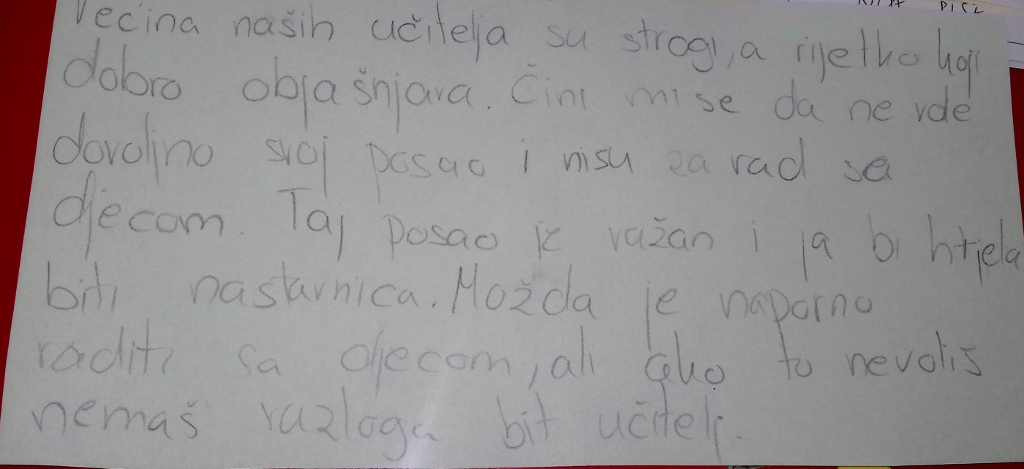 Većina naših učitelja su strogi, a rijetko koji
dobro objašnjava. Čini mi se da ne vole
dovoljno svoj posao i nisu za rad sa
djecom. Taj posao je važan i ja bi htjela
biti nastavnica. Možda je naporno
raditi sa djecom, ali ako to nevoliš
nemaš razloga bit učitelj.